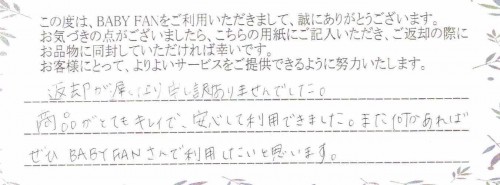 この度は、BABY FANをご利用いただきまして、誠にありがとうございます。
お気づきの点がございましたら、こちらの用紙にご記入いただき、ご返却の際に
お品物に同封していただければ幸いです。
お客様にとって、よりよいサービスをご提供できるように努力いたします。
返却が遅くなり申し訳ありませんでした。
商品がとてもキレイで、安心して利用できました。また何かあれば
ぜひ BABY FANさんで利用したいと思います。